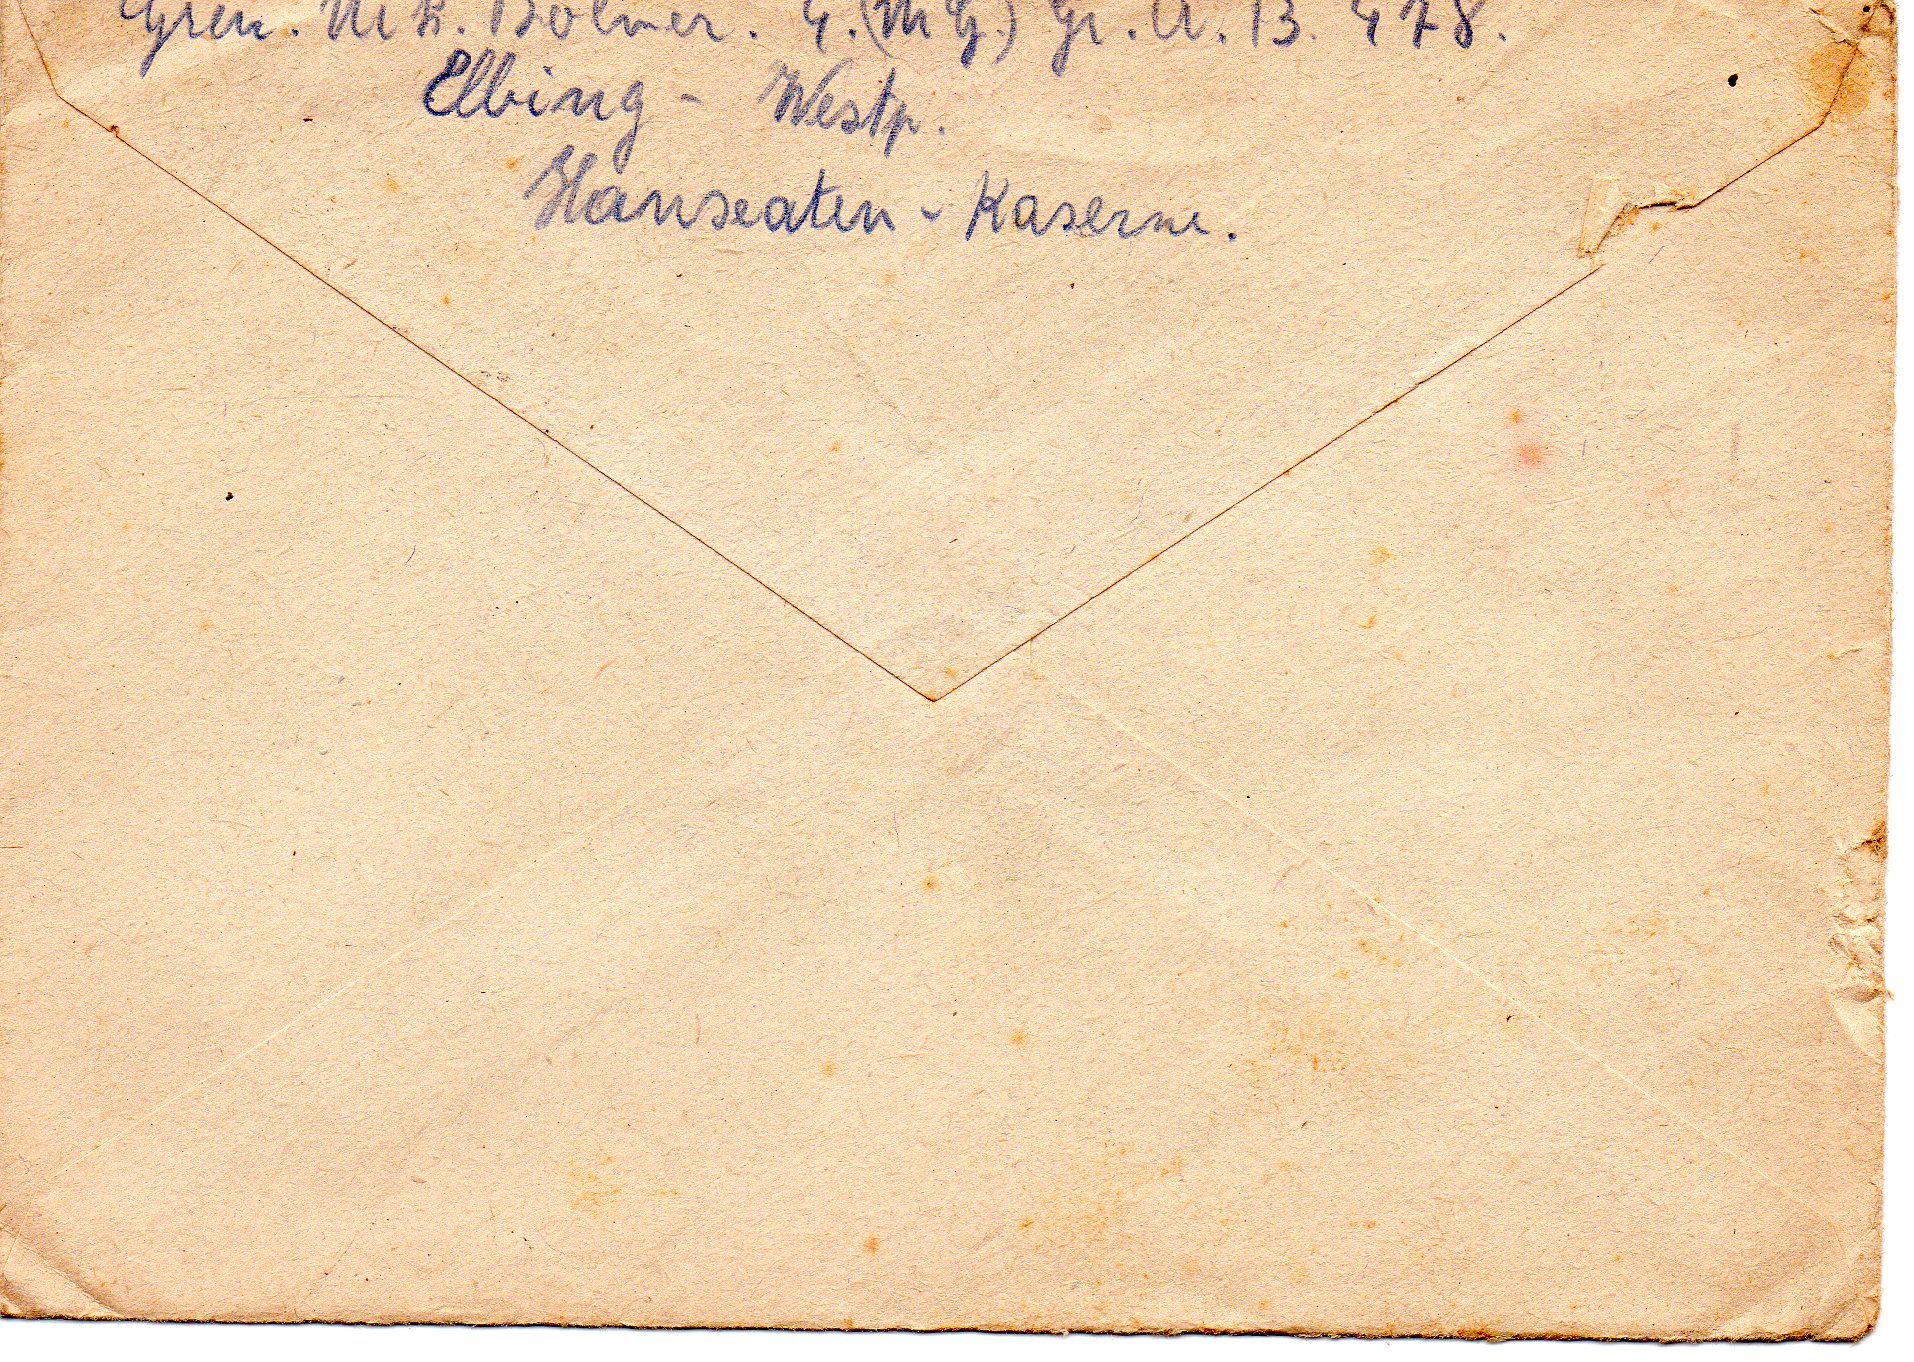 Gren. Nik. Bolmer. 4.(M.G.) Gr. A. B. 478.
Elbing - Westp.
Hanseaten - Kaserne.